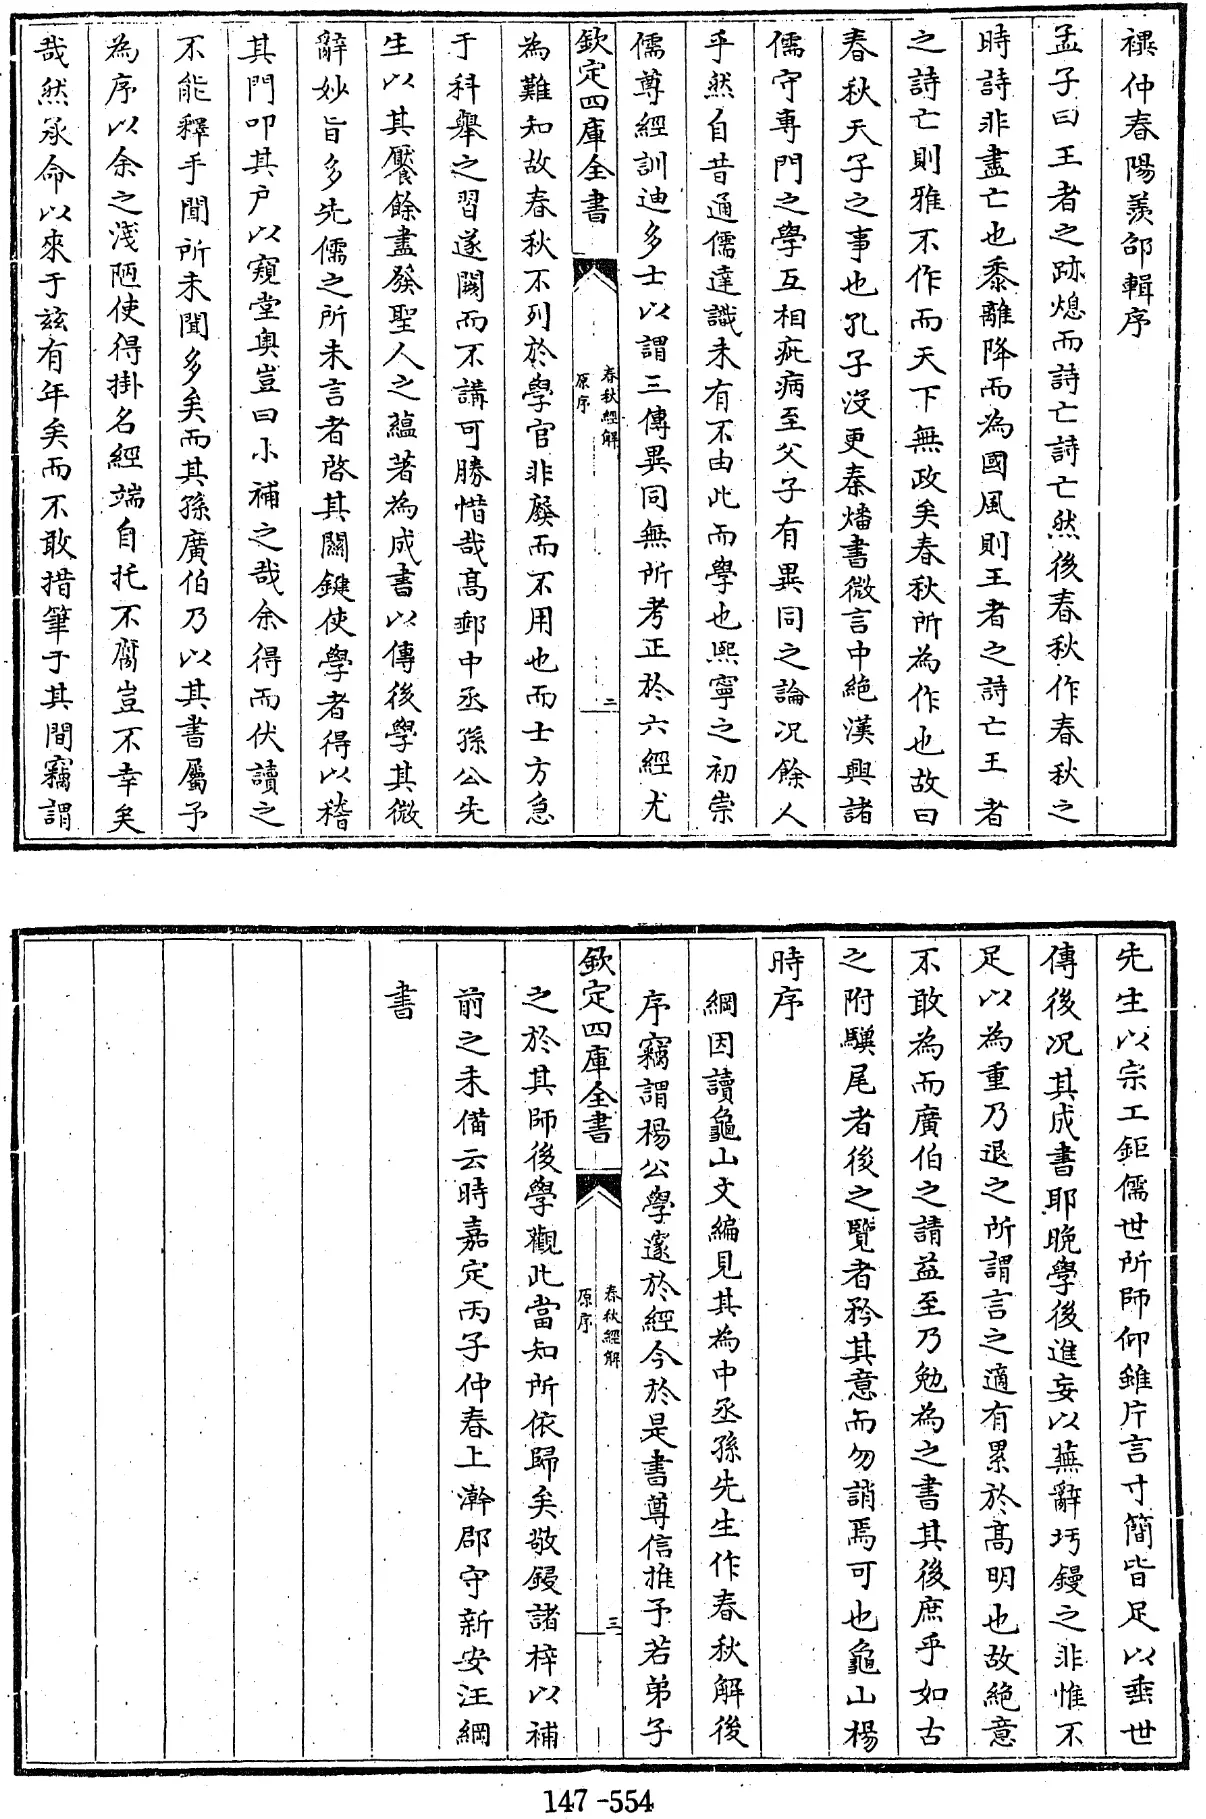 禩仲春陽羨邵輯序
孟子曰王者之跡熄而詩亡詩亡然後春秋作春秋之
時詩非盡亡也黍離降而為國風則王者之詩亡王者
之詩亡則雅不作而天下無政矣春秋所為作也故曰
春秋天子之事也孔子沒更秦燔書微言中絶漢興諸
儒守專門之學互相疵病至父子有異同之論况餘人
乎然自昔通儒達識未有不由此而學也熙寧之初崇
儒尊經訓迪多士以謂三傳異同無所考正於六經尤
欽定四庫全書
春秋經解
原序
二
為難知故春秋不列於學官非廢而不用也而士方急
于科舉之習遂闕而不講可勝惜哉髙郵中丞孫公先
生以其饜餘盡發聖人之藴著為成書以傳後學其微
辭妙旨多先儒之所未言者啓其關鍵使學者得以稽
其門叩其户以窺堂奥豈曰小補之哉余得而伏讀之
不能釋手聞所未聞多矣而其孫廣伯乃以其書屬予
為序以余之淺陋使得掛名經端自托不腐豈不幸矣
哉然承命以來于兹有年矣而不敢措筆于其間竊謂
先生以宗工鉅儒世所師仰雖片言寸簡皆足以垂世
傳後况其成書耶晚學後進妄以蕪辭圬鏝之非惟不
足以為重乃退之所謂言之適有累於髙明也故絶意
不敢為而廣伯之請益至乃勉為之書其後庶乎如古
之附驥尾者後之覽者矜其意而勿誚焉可也龜山楊
時序
綱因讀龜山文編見其為中丞孫先生作春秋解後
序竊謂楊公學邃於經今於是書尊信推予若弟子
欽定四庫全書
春秋經解
原序
三
之於其師後學觀此當知所依歸矣敬鋟諸梓以補
前之未備云時嘉定丙子仲春上澣郡守新安汪綱
書
147-554